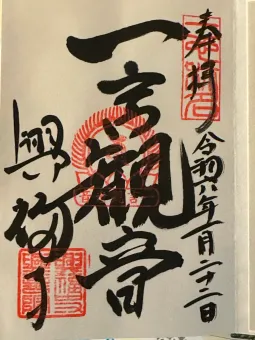 奉拝
令和六年一月二十二日
一言観音
興福寺